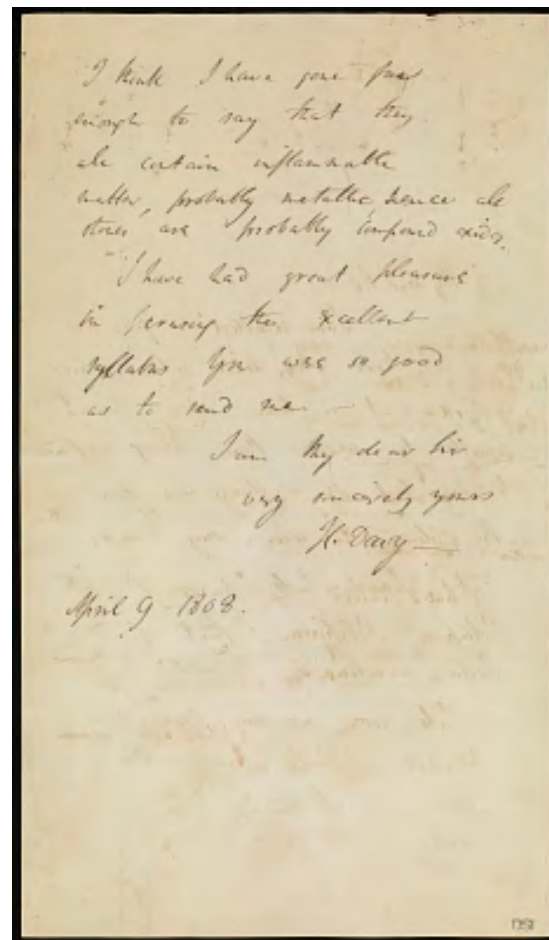 I think I have gone far
enough to say that they
all contain inflammable
matter, probably metallic, hence all
stones are probably compound oxides.
I have had great pleasure
in perusing the excellent
syllabus you were so good
as to send me —
I am my dear Sir
very sincerely yours
H. Davy —
April 9 1808.